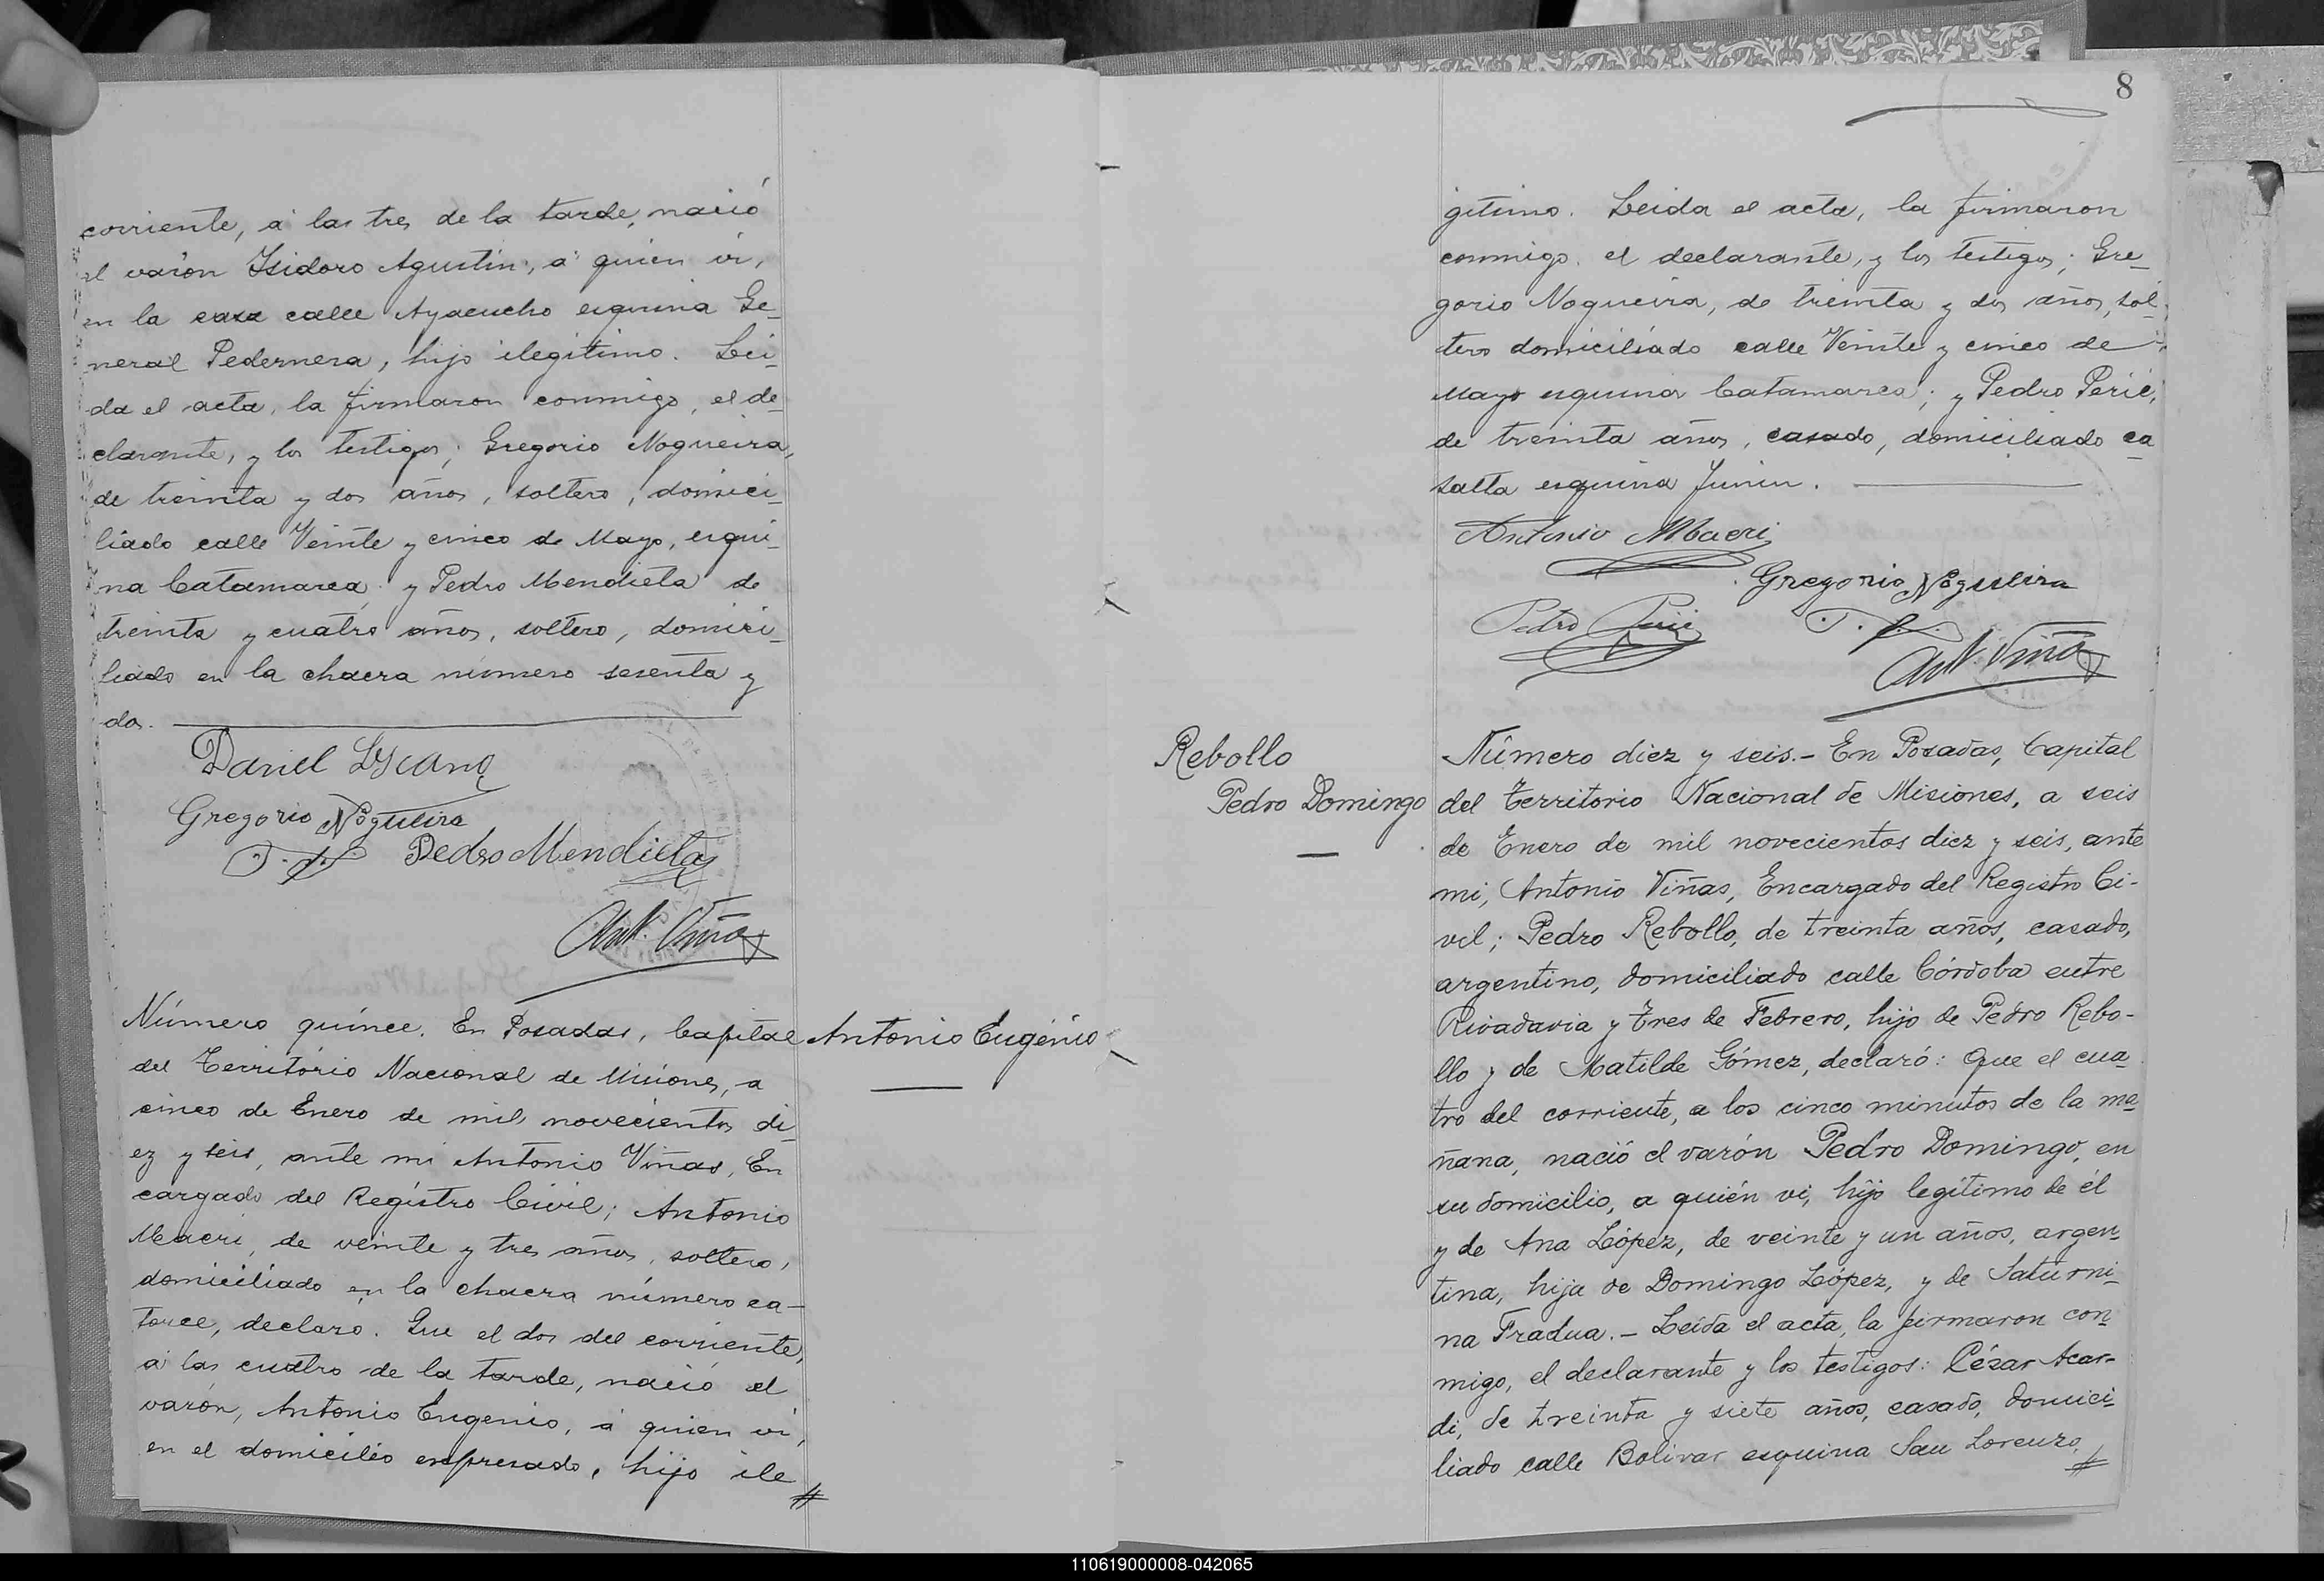 corriente, á las tres de la tarde, nació
el varón Isidoro Agustin, á quien vi,
en la casa calle Ayacucho esquina Ge-
neral Pedernera, hijo ilegítimo. Lei-
da el acta, la firmaron conmigo, el de-
clarante, y los testigos; Gregorio Nogueira,
de treinta y dos años, soltero, domici-
liado calle Veinte y cinco de Mayo, esqui-
na Catamarca; y Pedro Mendieta de
treinta y cuatro años, soltero, domici-
liado en la chacra número sesenta y
dos.
Daniel Lscano
Gregorio Nogueira
T. f. Pedro Mendieta
Ant. Viñas
Número quince. En Posadas, Capital
Antonio Eugenio
del Territorio Nacional de Misiones, a
cinco de Enero de mil novecientos di-
ez y seis, ante mi Antonio Viñas, En
cargado del Registro Civil; Antonio
Macri, de veinte y tres años, soltero,
domiciliado en la chacra número ca-
torce, declaro. Que el dos del corriente,
á las cuatro de la tarde, nació el
varón, Antonio Eugenio, á quien vi,
en el domicilio expresado, hijo ile
8
gitimo. Leida el acta, la firmaron
conmigo, el declarante, y los testigos; Gre-
gorio Nogueira, de treinta y dos años, sol-
tero domiciliado calle Veinte y cinco de
Mayo esquina Catamarca; y Pedro Perié,
de treinta años, casado, domiciliado ca
salta esquina Junin.
Antonio Macri
Gregorio Nogueira
Pedro Perié T. f.
Ant. Viñas
Rebollo
Pedro Domingo
Número diez y seis.- En Posadas, Capital
del Territorio Nacional de Misiones, a seis
de Enero de mil novecientos diez y seis, ante
mi, Antonio Viñas, Encargado del Registro Ci-
vil; Pedro Rebollo, de treinta años, casado,
argentino, domiciliado calle Córdoba entre
Rivadavia y Tres de Febrero, hijo de Pedro Rebo-
llo y de Matilde Gómez, declaró: Que el cua
tro del corriente, a los cinco minutos de la ma
ñana, nació el varón Pedro Domingo, en
su domicilio, a quién vi, hijo legítimo de él
y de Ana López, de veinte y un años, argen-
tina, hija de Domingo López, y de Saturni-
na Fradua.- Leída el acta, la firmaron con
migo, el declarante y los testigos: César Acar-
di, de treinta y siete años, casado, domici-
liado calle Bolivar esquina San Lorenzo,
110619000008-042065